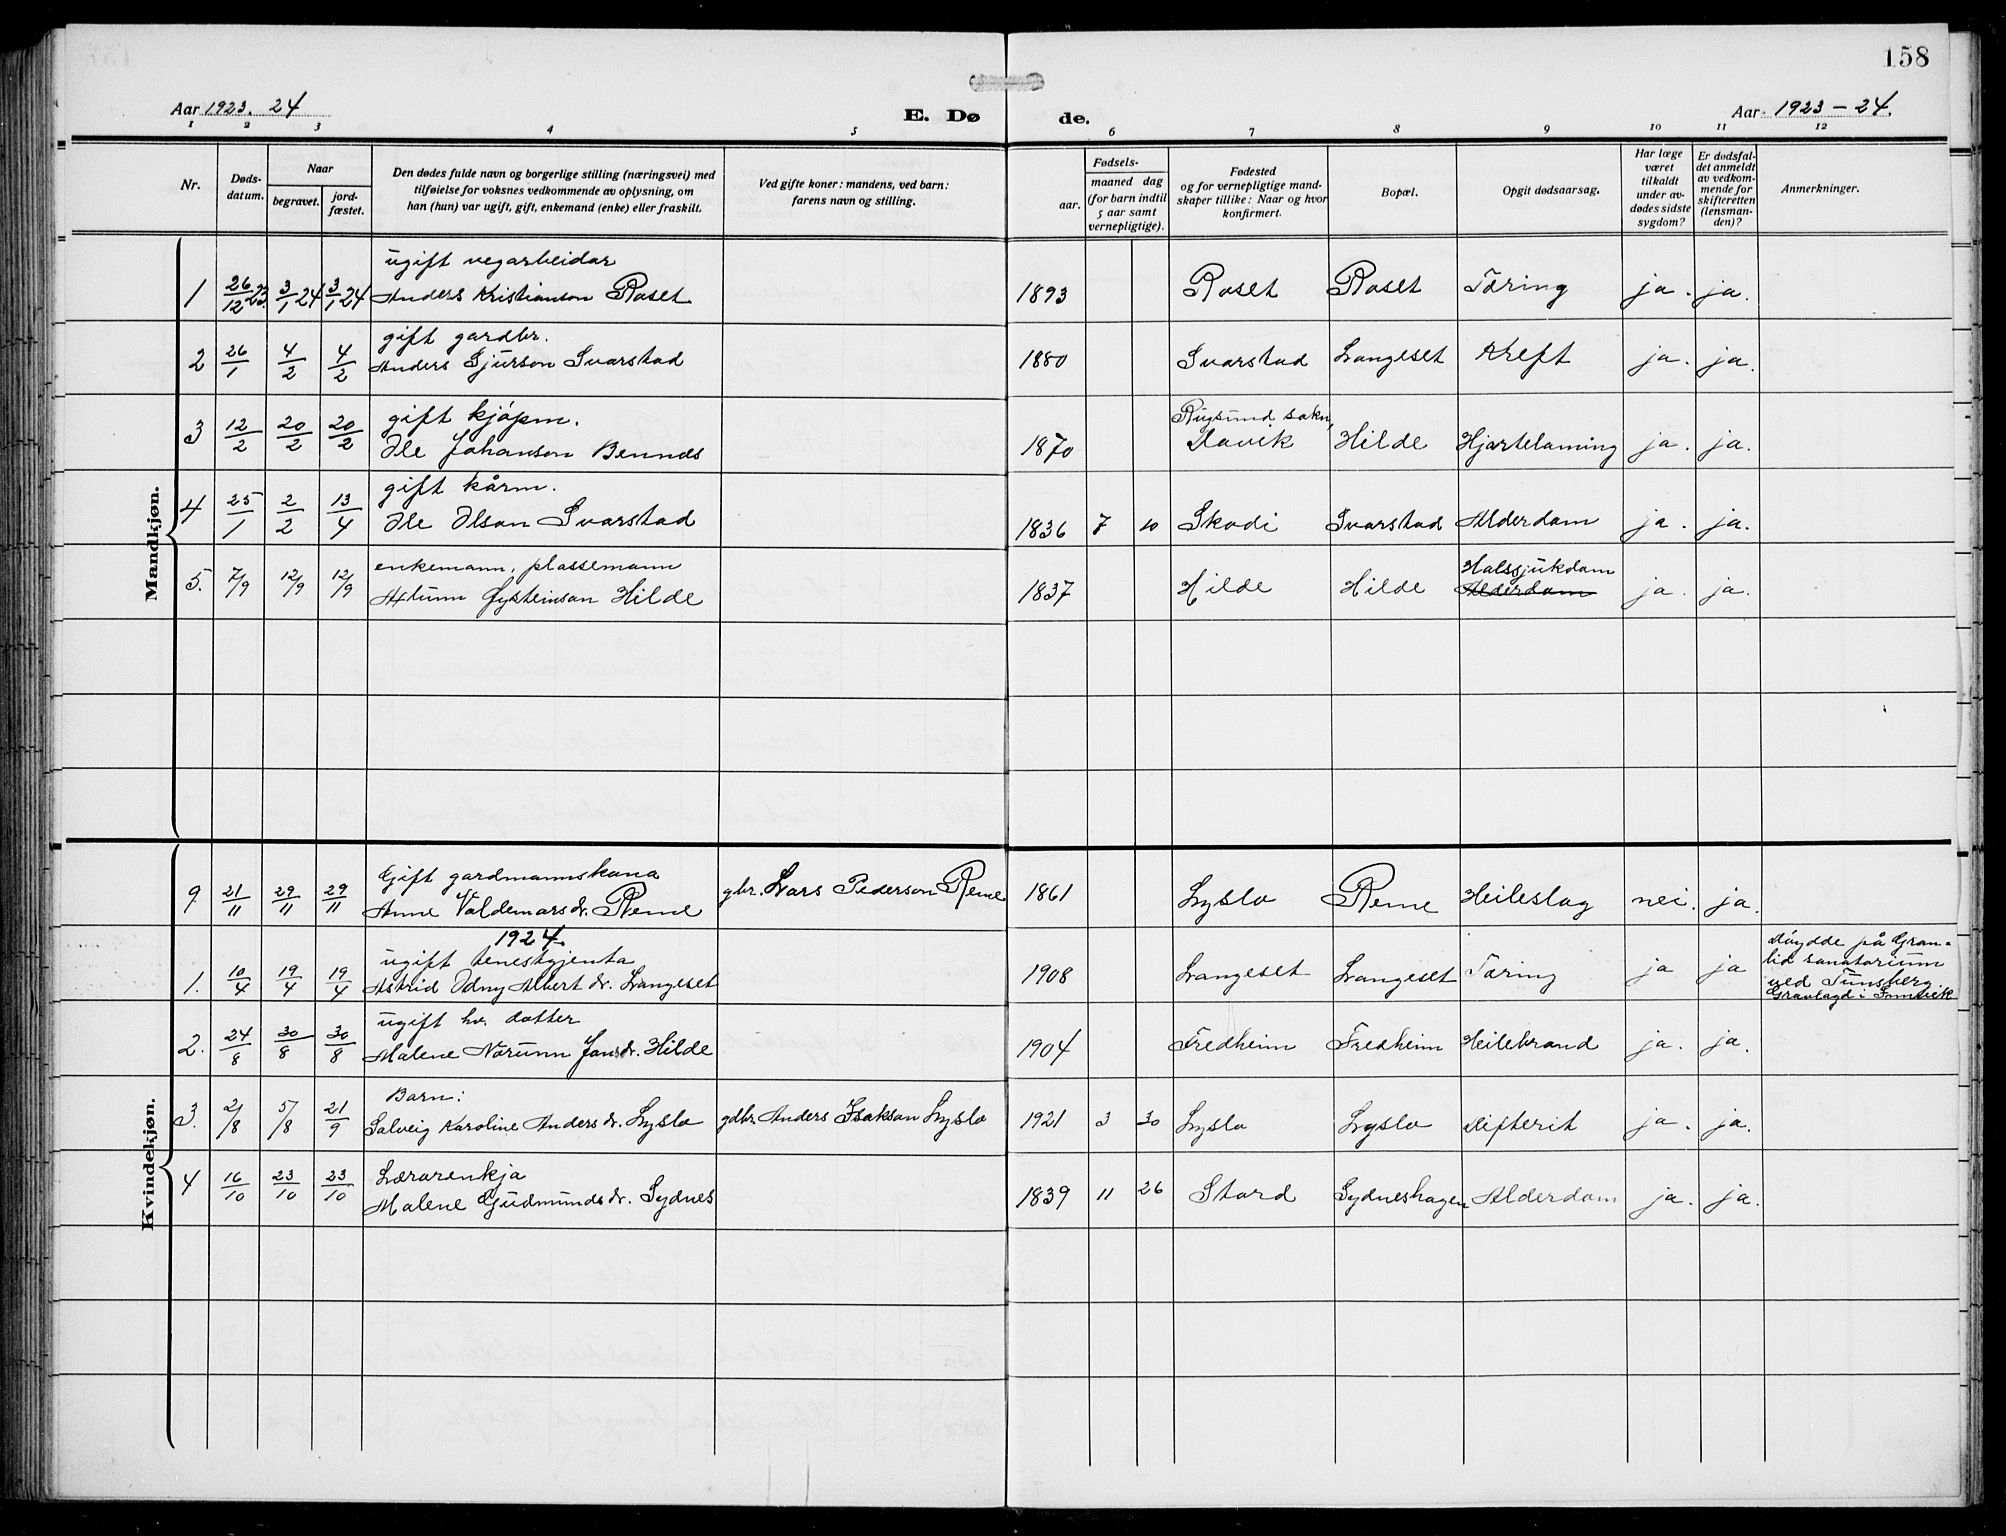 158
Aar 1923. 24
E. Dø
de.
Aar 1923 – 24.
1 2 3 4 5 6 7 8 9 10 11 12
Nr.
Døds-
datum.
Naar
begravet.
jord-
fæstet.
Den dødes fulde navn og borgerlige stilling (næringsvei) med
tilføielse for voksnes vedkommende av oplysning, om
han (hun) var ugift, gift, enkemand (enke) eller fraskilt.
Ved gifte koner: mandens, ved barn:
farens navn og stilling.
Fødsels-
aar.
maaned dag
(for barn indtil
5 aar samt
vernepligtige).
Fødested
og for vernepligtige mand-
skaper tillike: Naar og hvor
konfirmert.
Bopæl.
Opgit dødsaarsag.
Har læge
været
tilkaldt
under av-
dødes sidste
sygdom?
Er dødsfal-
det anmeldt
av vedkom-
mende for
skifteretten
(lensman-
den)?
Anmerkninger.
Mandkjøn.
ugift vegarbeidar
1 26/12 23. 3/1 24 3/1 24 Anders Kristianson Roset 1893 Roset Roset Tæring ja. ja.
gift gardbr.
2 26/1 4/2 4/2 Anders Gjurson Svarstad 1880 Svarstad Langeset Kreft ja. ja.
gift kjøpm. Rugsund sokn,
3 12/2 20/2 20/2 Ole Johanson Bennes 1870 Davik Hilde Hjartelaming ja. ja.
gift kårm.
4 25/1 2/2 13/4 Ole Olson Svarstad 1836 7 10 Skodi Svarstad Alderdom ja. ja.
enkemann, plassemann Halssjukdom
5. 7/9 12/9 12/9 Atlunn Øysteinson Hilde 1837 Hilde Hilde Alderdom ja. ja.
Kvindekjøn.
Gift gardmannskona
9 21/11 29/11 29/11 Anne Valdemarsdr. Reme gbr. Lars Pederson Reme 1861 Lyslo Reme Heileslag nei. ja.
1924.
ugift tenestgjenta
1. 10/4 19/4 19/4 Astrid Odny Albertdr. Langeset 1908 Langeset Langeset Tæring ja ja
Døydde på Gran-
lid sanatorium
ved Tunsberg
Gravlagd i Innvik
ugift hv. dotter
2. 24/8 30/8 30/8 Malene Norunn Jonsdr. Hilde 1904 Fredheim Fredheim Heilebrand ja. ja.
Barn:
3. 2/8 5/8 21/9 Solveig Karoline Andersdr. Lyslo gdbr. Anders Isakson Lyslo 1921 3 30 Lyslo Lyslo Difterit ja. ja.
Lærarenkja
4 16/10 23/10 23/10 Malene Gudmundsdr. Sydnes 1839 11 26 Stord Sydneshagen Alderdom ja. ja.